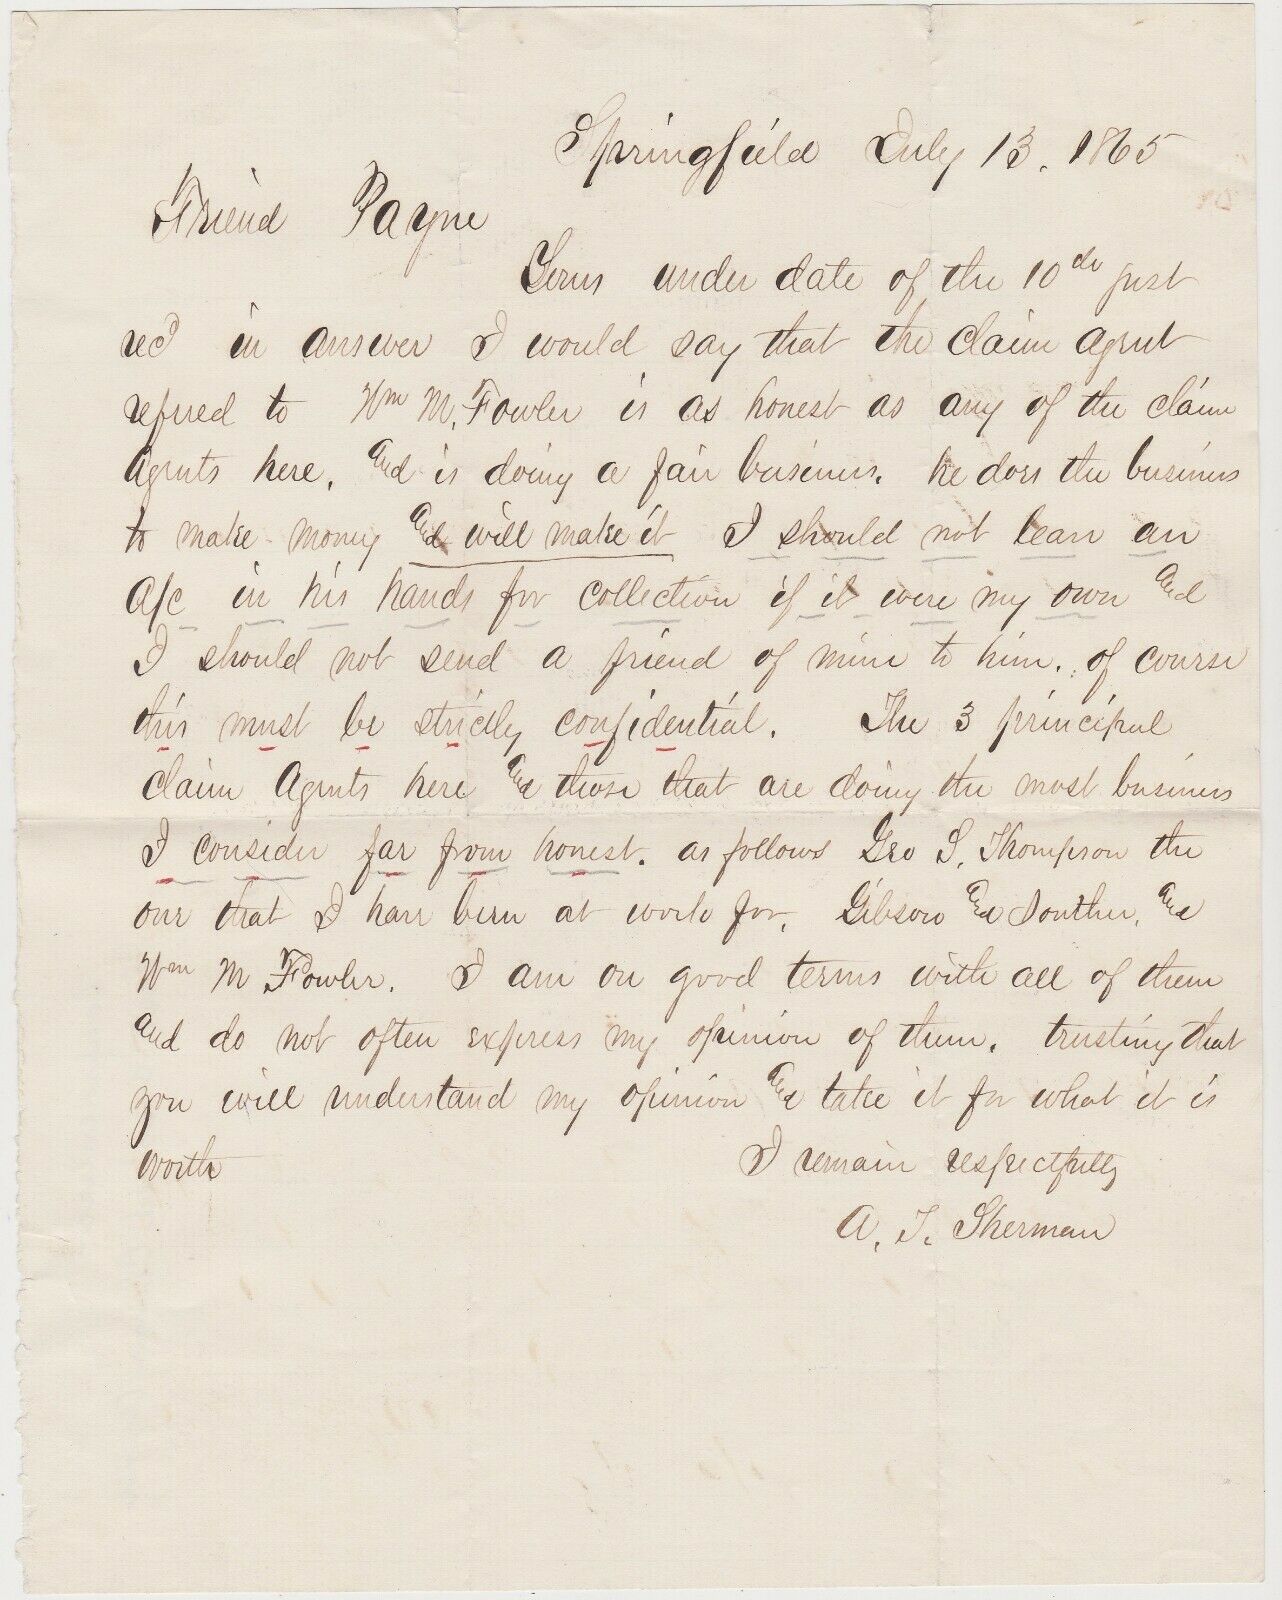 Springfield July 13, 1865
Friend Payne
Yours under date of the 10th just
recd in answer I would say that the claim agent
refered to Wm M. Fowler is as honest as any of the claim
Agents here, and is doing a fair business. he does the business
to make money and will make it I should not leave an
a/c in his hands for collection if it were my own and
I should not send a friend of mine to him. of course
this must be strictly confidential. The 3 principal
claim Agents here and those that are doing the most business
I consider far from honest. as follows Geo S. Thompson the
one that I have been at work for, Gibson and Souther, and
Wm M Fowler. I am on good terms with all of them
and do not often express my opinion of them. trusting that
you will understand my opinion and take it for what it is
worth I remain respectfully
A. T. Sherman